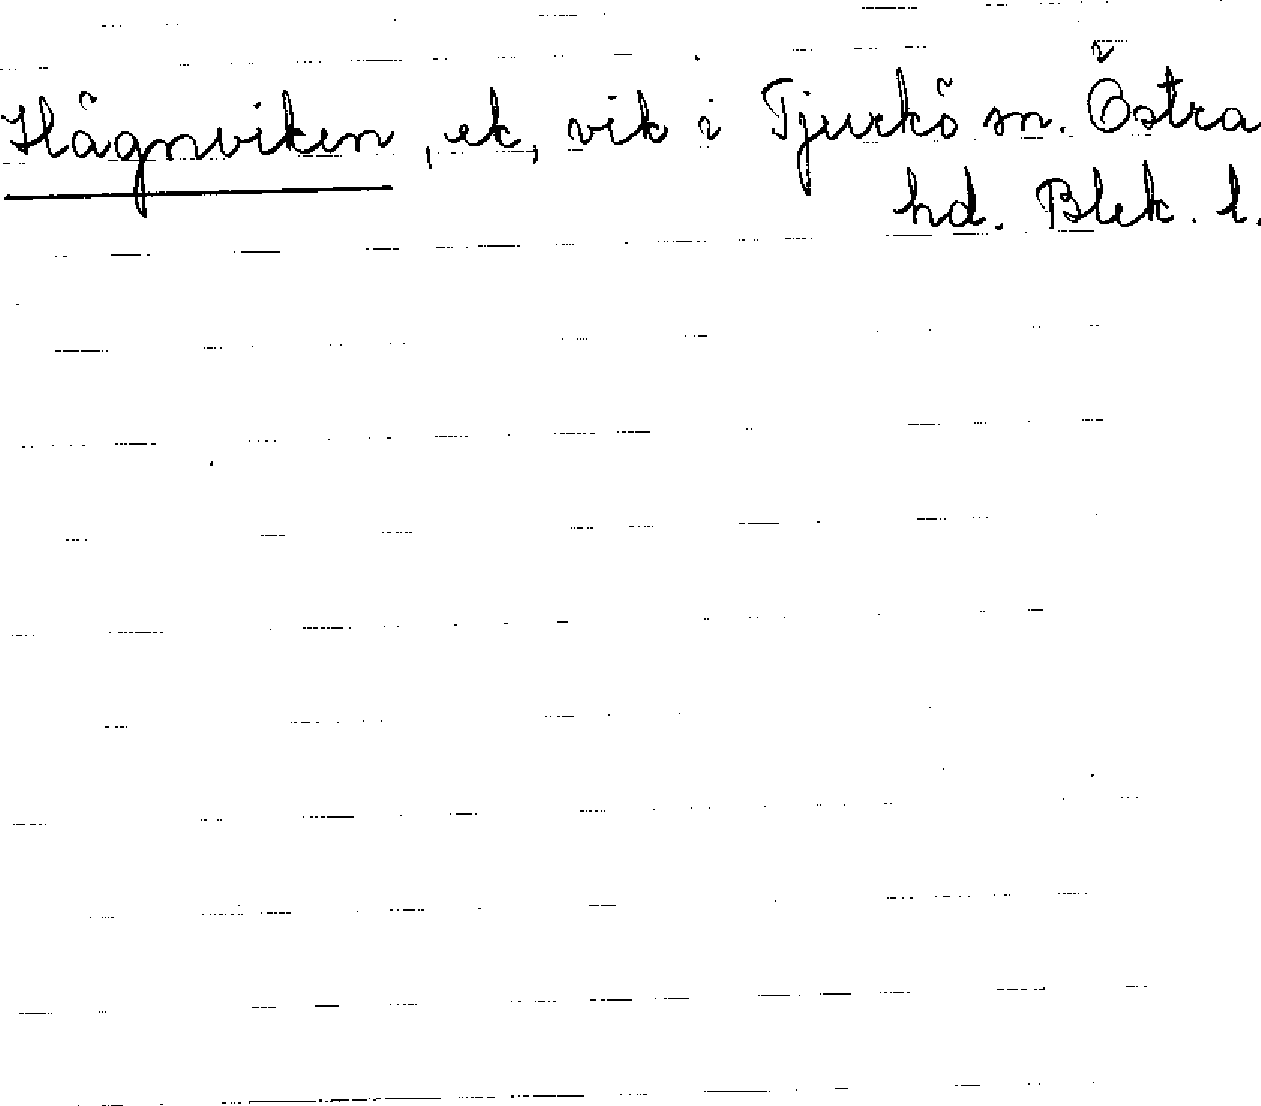 Hägnviken, ek, vik i Tjurkö sn. Östra
hd. Blek. l.